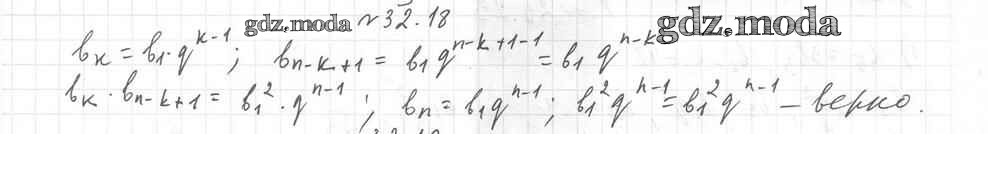 gdz.moda №32.18 gdz.moda
b_k = b_1·q^{k-1}; b_{n-k+1} = b_1 q^{n-k+1-1} = b_1 q^{n-k}
b_k · b_{n-k+1} = b_1^2 · q^{n-1}; b_n = b_1 q^{n-1}; b_1^2 q^{n-1} = b_1^2 q^{n-1} – верно.